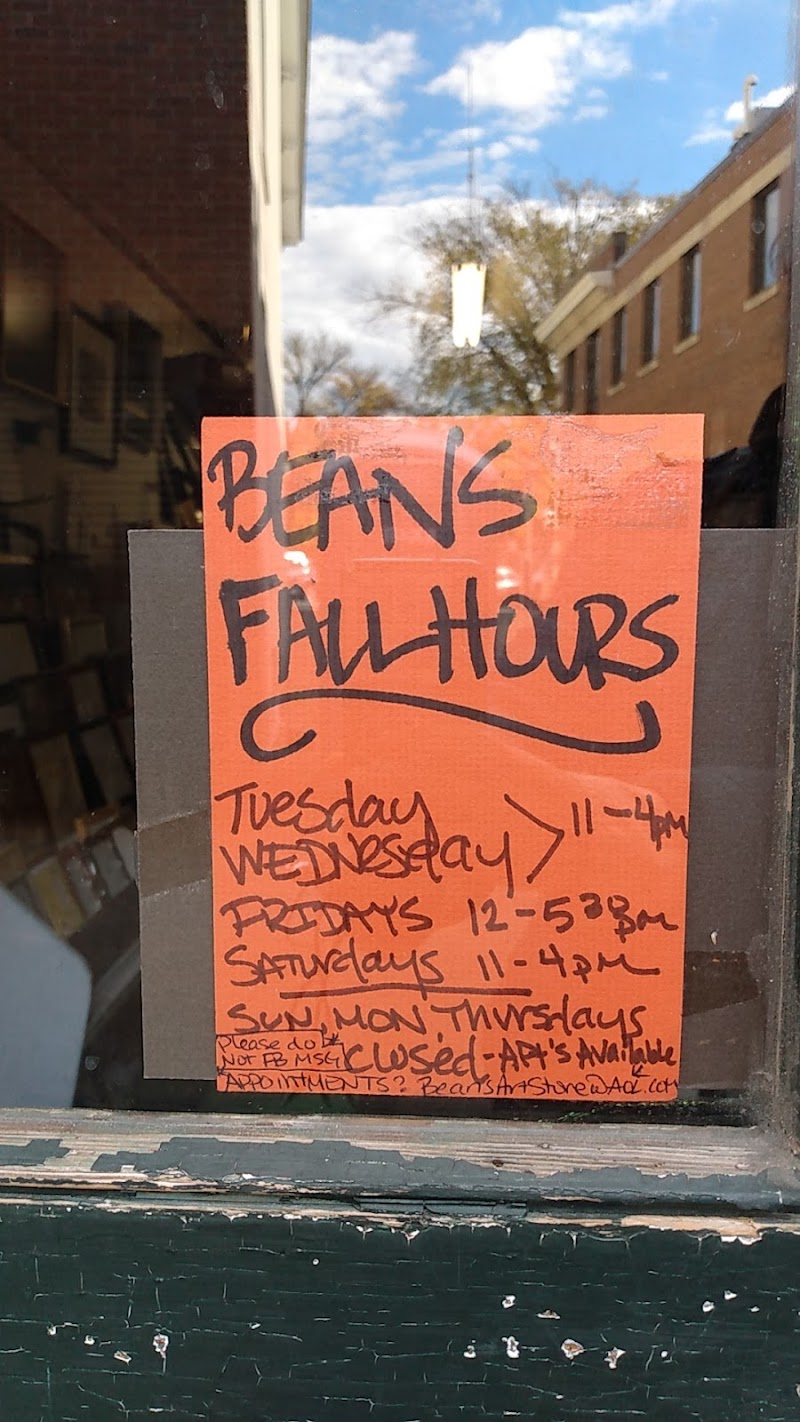 BEAN'S
FALL HOURS
Tuesday
WEDNesday > 11-4pm
FRIDAYS 12-530pm
SATurdays 11-4pm
SUN, MON, Thursdays
CLOSED - APt's Available
Please do
Not FB MSG
APPOINTMENTS? Bean'sArtStore@AOL.com